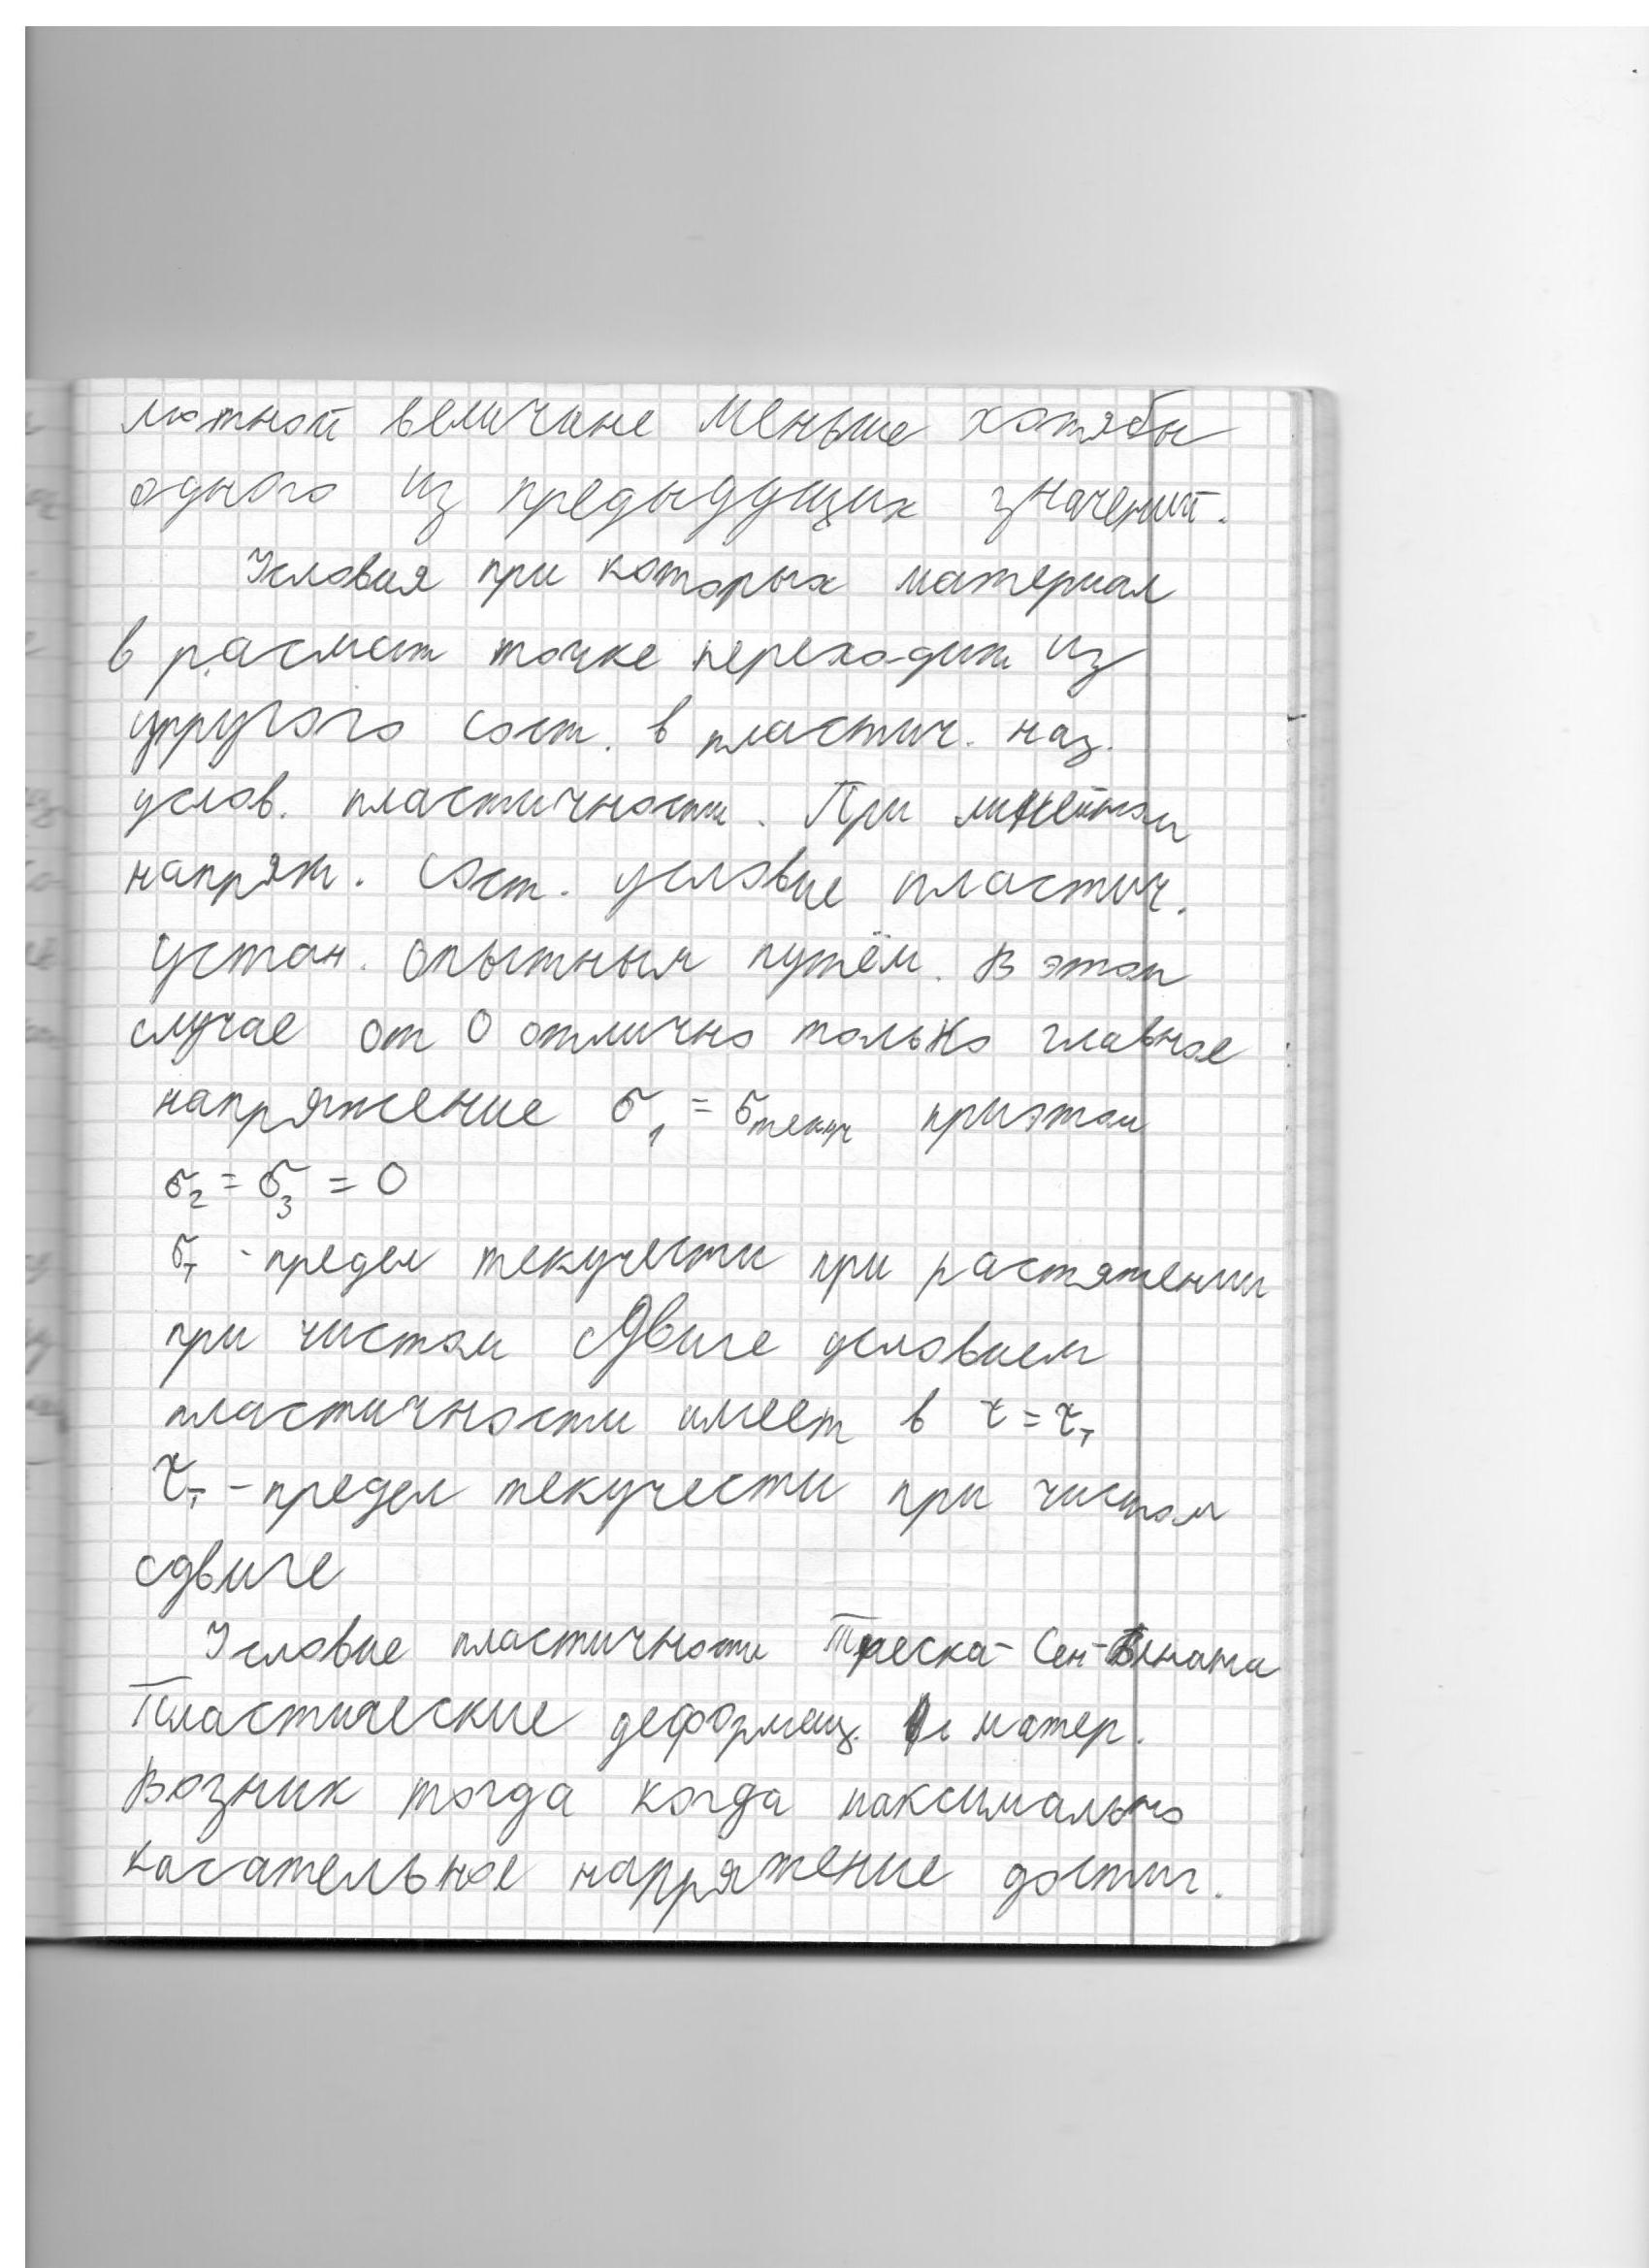 лютной величине меньше хотябы
одного из предыдущих значений.
Условия при которых материал
в расмат точке переходит из
упругого сост. в пластич. наз.
услов. пластичности. При линейном
напряж. сост. условие пластич.
устан. опытным путём. В этом
случае от 0 отлично только главное
напряжение σ₁ = σтекуч приэтом
σ₂ = σ₃ = 0
σт - предел текучести при растяжении
при чистом сдвиге условием
пластичности имеет в τ = τт
τт - предел текучести при чистом
сдвиге
Условие пластичности Треска - Сен-Венана
Пластические деформац. в матер.
Возник тогда когда максимально
касательное напряжение достиг.